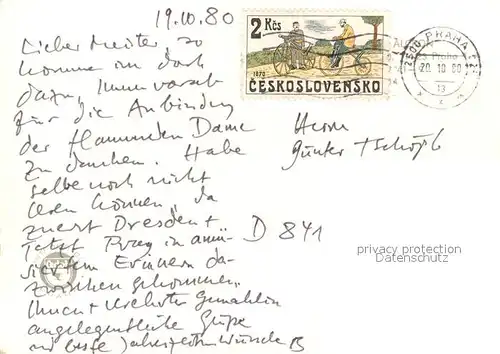 19.10.80
Lieber Meister, so
komme ich doch
dazu, Ihnen vorab
für die Anbindung
der flammenden Dame
zu danken. Habe
selbe noch nicht
lesen können, da
zuerst Dresden +
jetzt Prag in
Erinnern da-
zwischen gekommen.
Ihnen + Gemahlin
angelegentliche Grüße
und beste
2 Kčs
1870
ČESKOSLOVENSKO
PRAHA
20.10.80
13
Herrn
Günter
D 841
privacy protection
Datenschutz